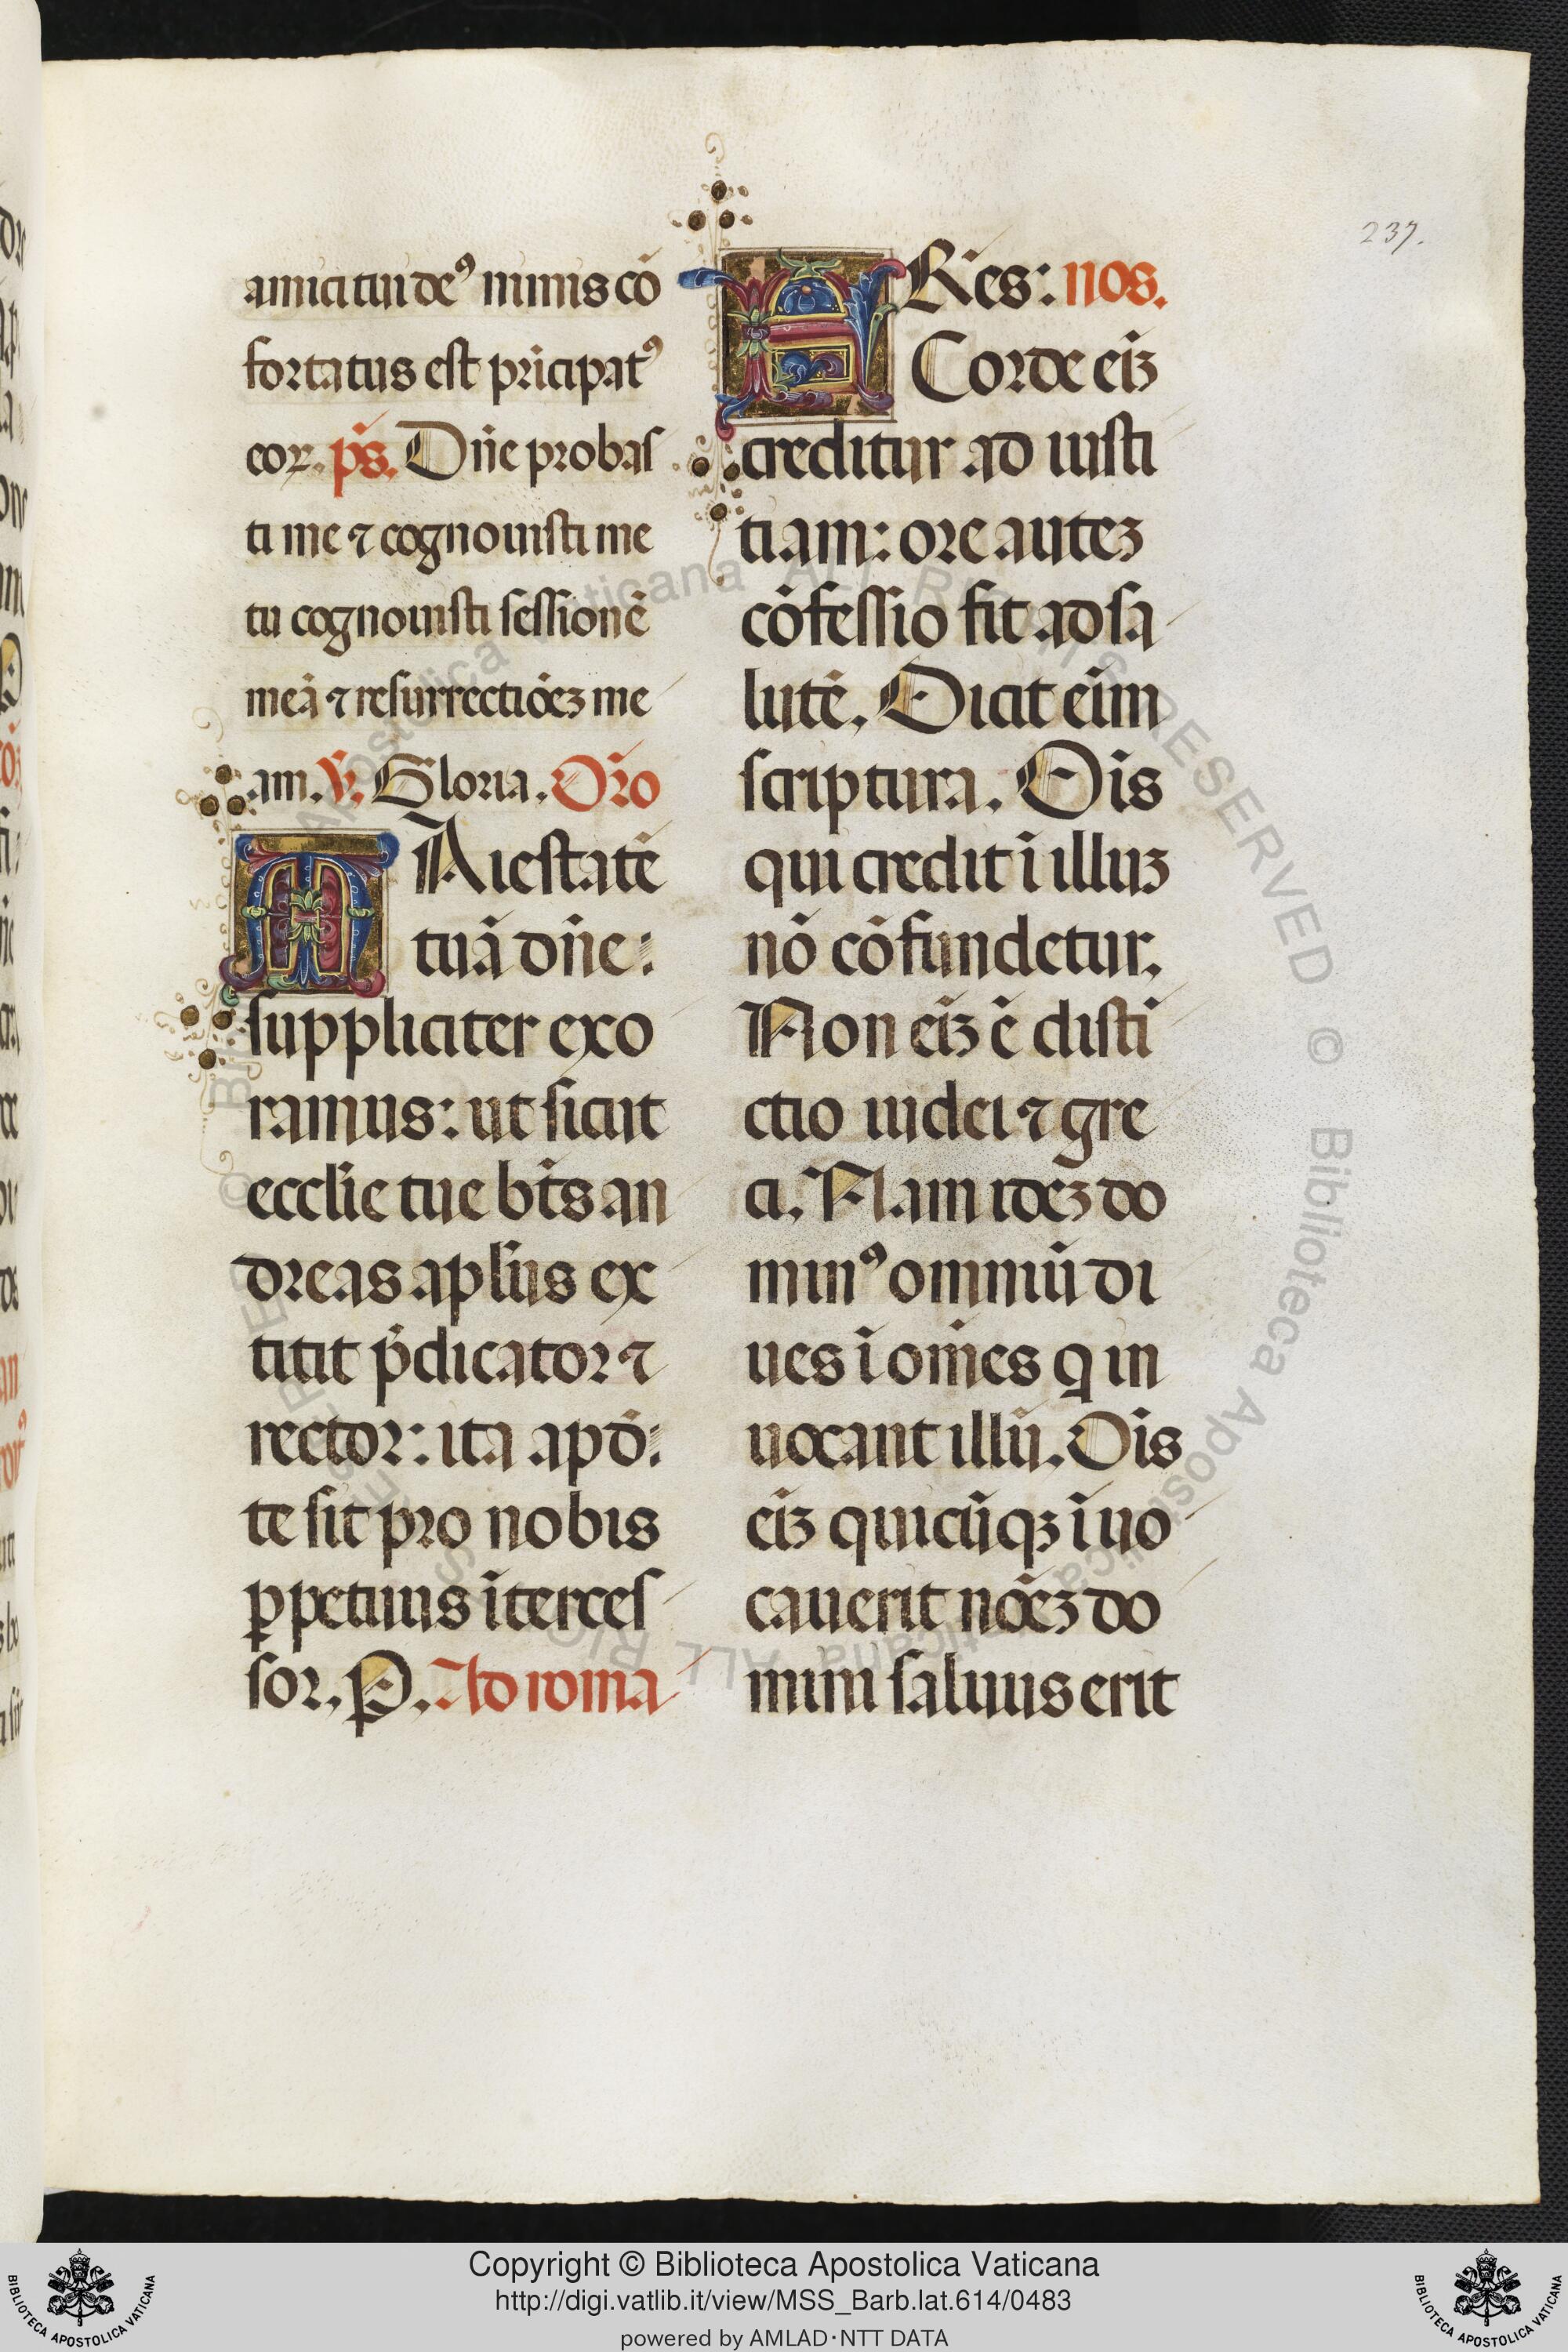 237.
amici tui de⁹ nimis cō
fortatus est pricipat⁹
eoꝝ. ps. Dn̄e probas
ti me ⁊ cognouisti me
tu cognouisti sessionē
meā ⁊ resurrectiōeʒ me
am. ℣. Gloria. Or̄o
MAiestatē
tuā dn̄e:
suppliciter exo
ramus: ut sicut
eccl̄ie tue bt̄s an
dreas apl̄us ex
titit p̄dicator ⁊
rector: ita apd̄:
te sit pro nobis
ꝑpetuus ītercef
sor. P. Ad roma
FRēs: nos.
Corde eīʒ
creditur ad iusti
tiam: ore auteʒ
cōfessio fit ad sa
lutē. Dicit eīm
scriptura. Oīs
qui credit ī illuʒ
nō cōfundetur.
Non eīʒ ē disti
ctio iudei ⁊ gre
ci. Nam ideʒ do
min⁹ omniū di
ues ī om̄es q in
uocant illū. Oīs
eīʒ quicūqʒ īuo
cauerit nōeʒ do
mini saluus erit
Copyright © Biblioteca Apostolica Vaticana
http://digi.vatlib.it/view/MSS_Barb.lat.614/0483
powered by AMLAD·NTT DATA
BIBLIOTECA APOSTOLICA VATICANA
BIBLIOTECA APOSTOLICA VATICANA